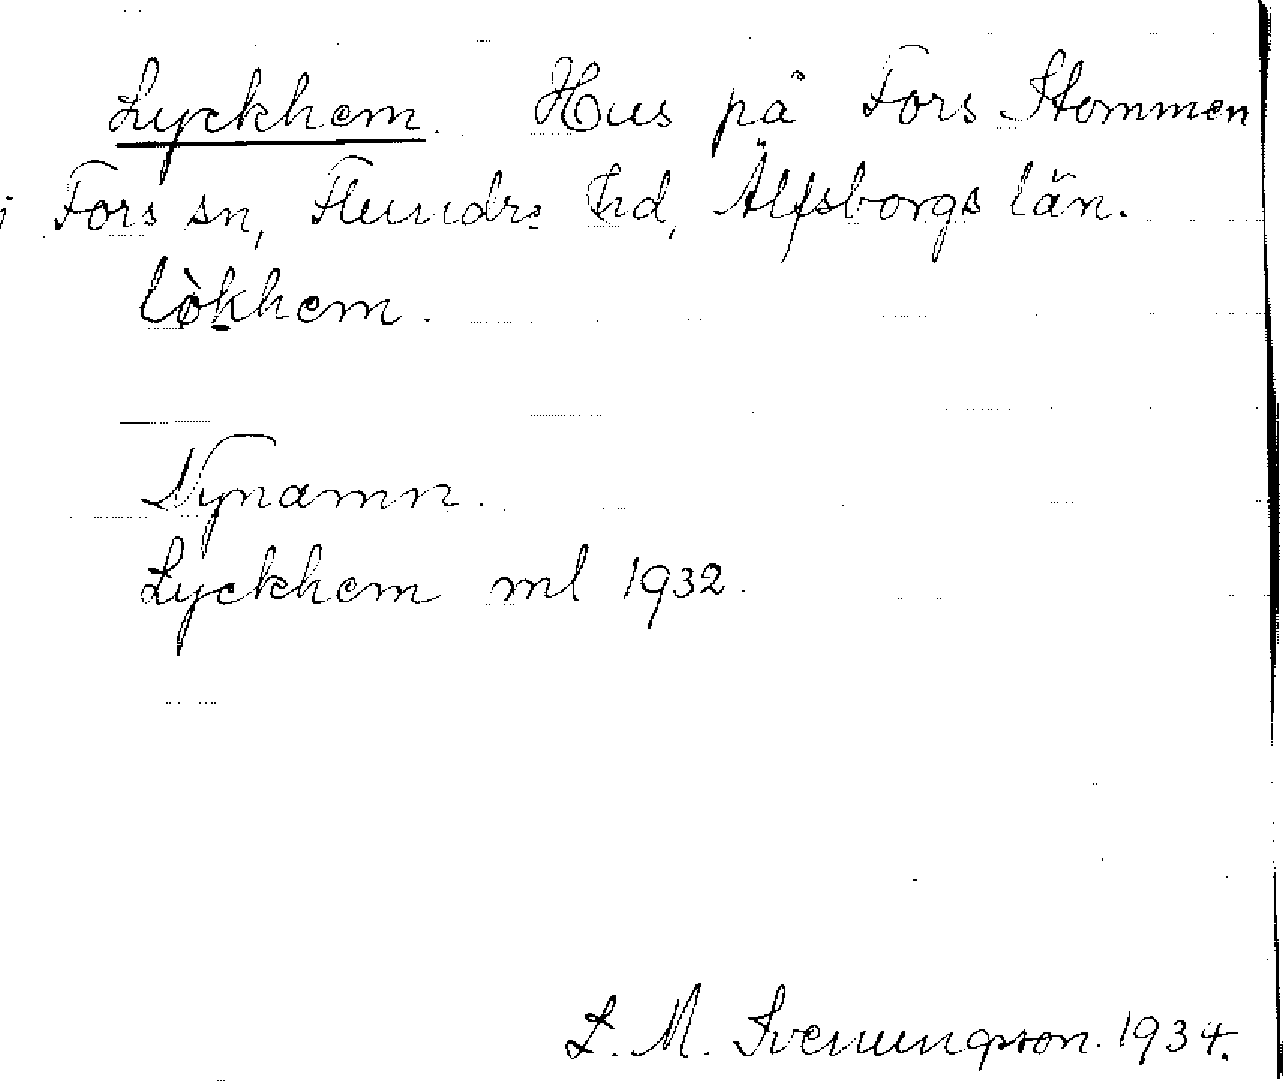 Lyckhem. Hus på Fors Stommen
i Fors sn, Flundre hd, Älfsborgs län.
lø̀khem.
Nynamn.
Lyckhem ml 1932.
L. M. Svenungsson. 1934.